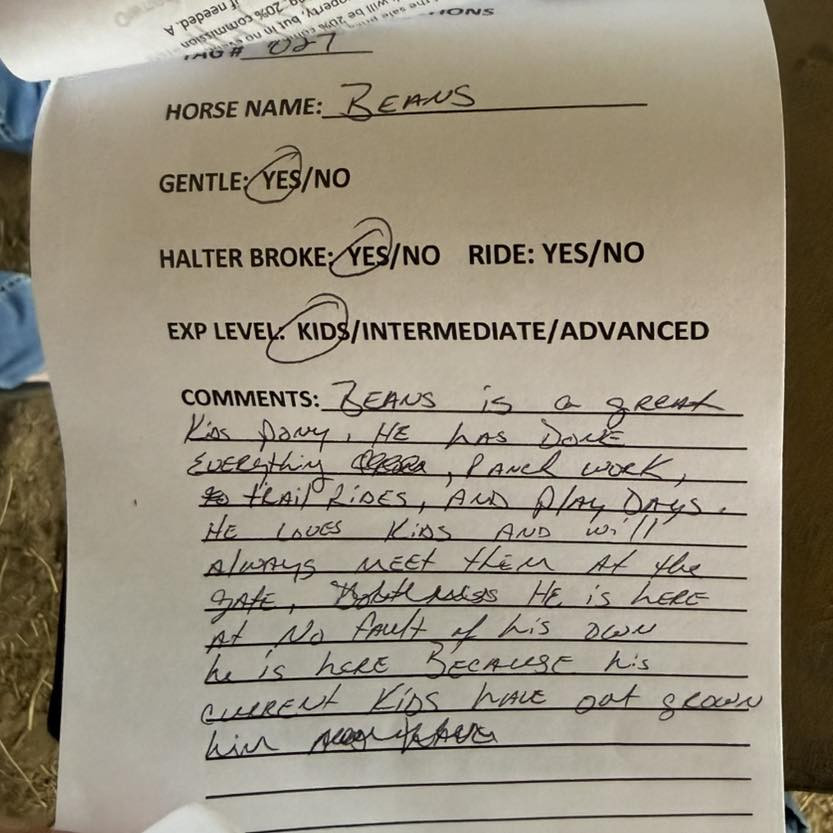 IONS
TAG # 027
HORSE NAME: BEANS
GENTLE: YES/NO
HALTER BROKE: YES/NO RIDE: YES/NO
EXP LEVEL: KIDS/INTERMEDIATE/ADVANCED
COMMENTS: BEANS is a great
Kids pony, HE HAS DONE
EVERything, RANCH WORK,
tRAIl RIDES, AND plAy DAYS.
HE LOVES KiDS AND will
Always MEET thEM At the
gAtE, HE is HERE
At No fAult of his OWN
he is hERE BECAUSE his
CURRENt KiDS hAVE out gROWN
him